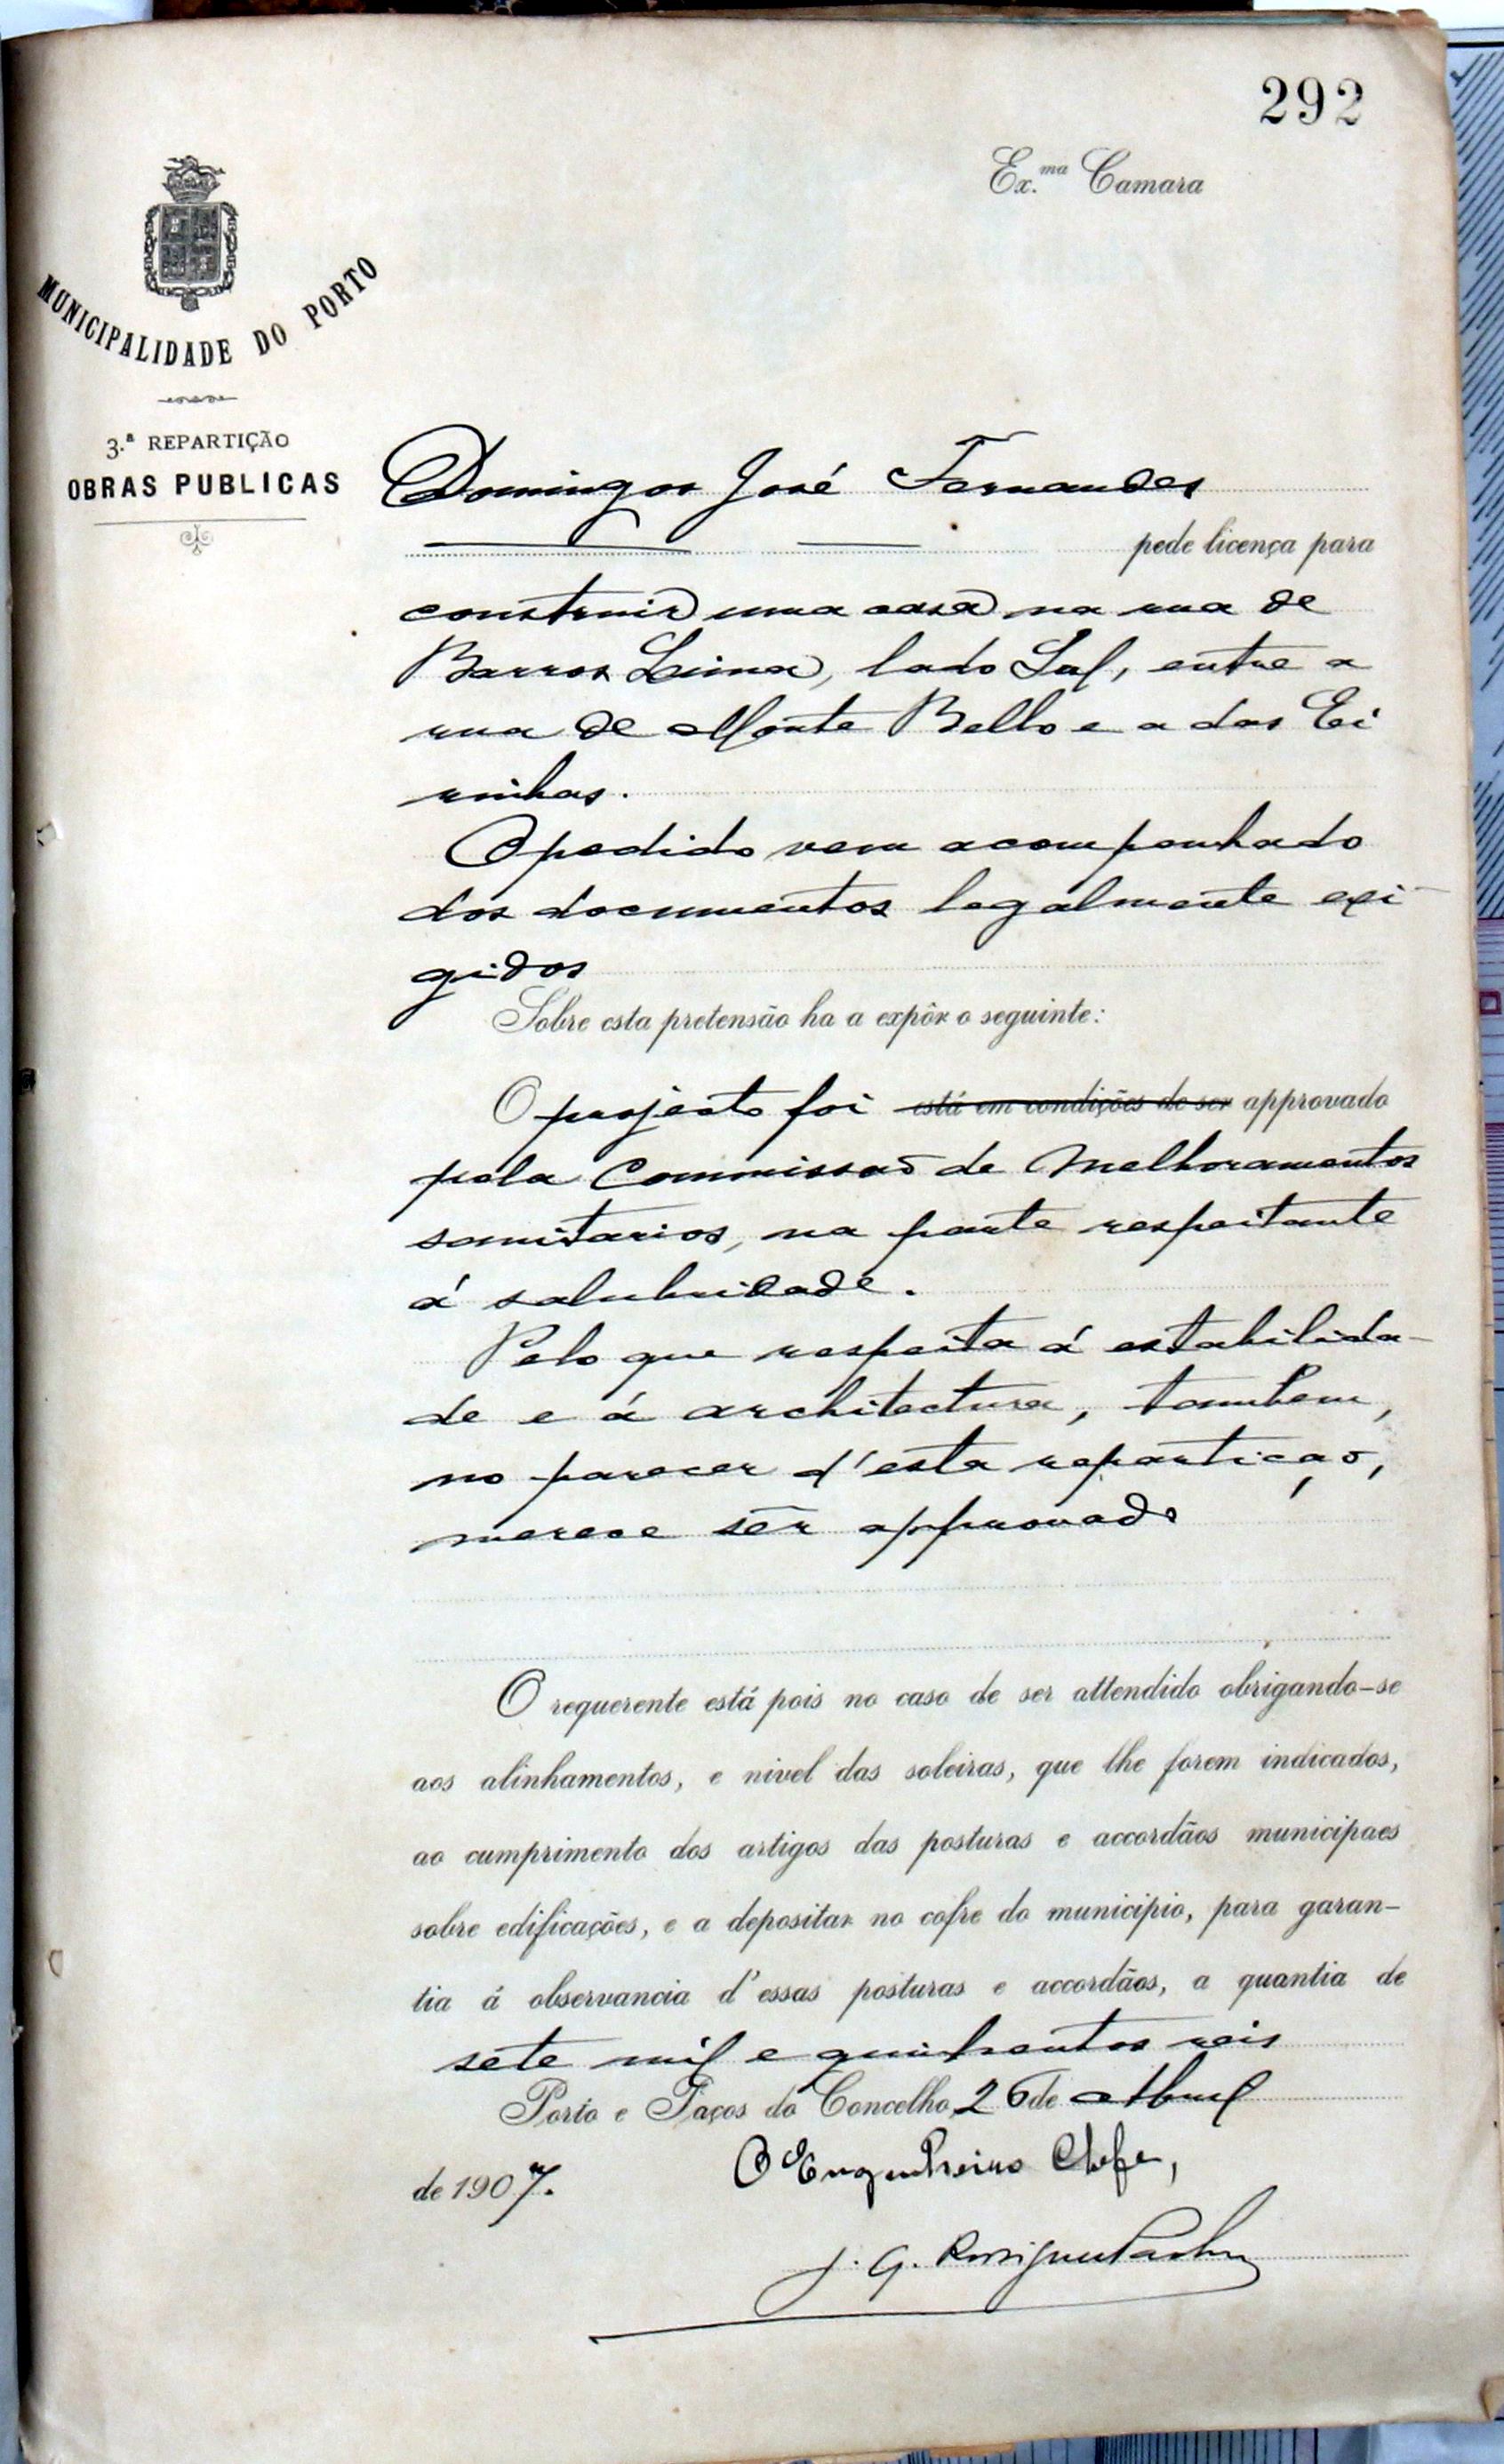 292
Ex.ma Camara
MUNICIPALIDADE DO PORTO
3.ª REPARTIÇÃO
OBRAS PUBLICAS
Domingos José Fernandes
pede licença para
construir uma casa na rua de
Barros Lima, lado Sul, entre a
rua de Monte Bello e a das Ei
rinhas.
O pedido vem acompanhado
dos documentos legalmente exi-
gidos
Sobre esta pretensão ha a expôr o seguinte:
O projecto foi está em condições de ser approvado
pela Commissão de Melhoramentos
sanitarios, na parte respeitante
á salubridade.
Pelo que respeita á estabilida-
de e á architectura, tambem,
no parecer d'esta repartição,
merece sêr approvado
O requerente está pois no caso de ser attendido obrigando-se
aos alinhamentos, e nivel das soleiras, que lhe forem indicados,
ao cumprimento dos artigos das posturas e accordãos municipaes
sobre edificações, e a depositar no cofre do municipio, para garan-
tia á observancia d'essas posturas e accordãos, a quantia de
sete mil e quinhentos reis
Porto e Paços do Concelho, 26 de Abril
de 1907.
O Engenheiro Chefe,
J. G.